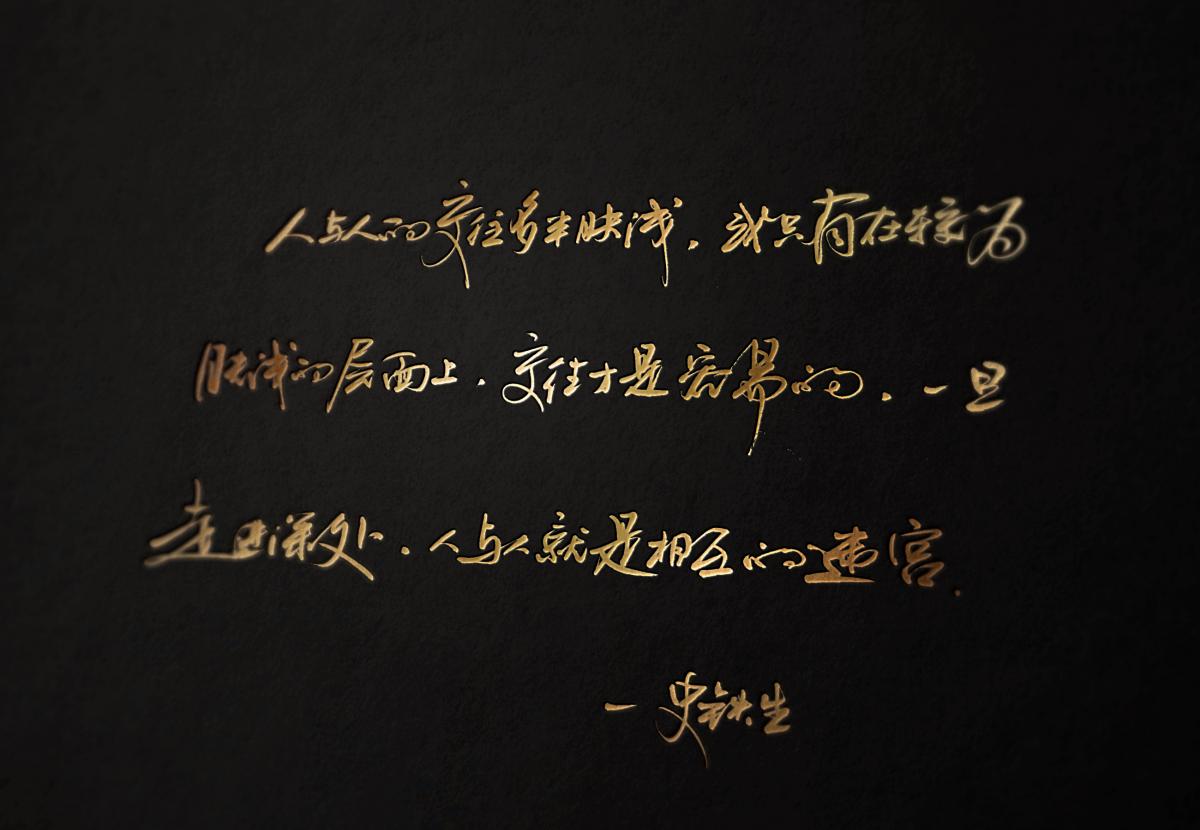 人与人的交往多半肤浅，或只有在较为
肤浅的层面上，交往才是容易的。一旦
走进深处，人与人就是相互的迷宫。
一史铁生